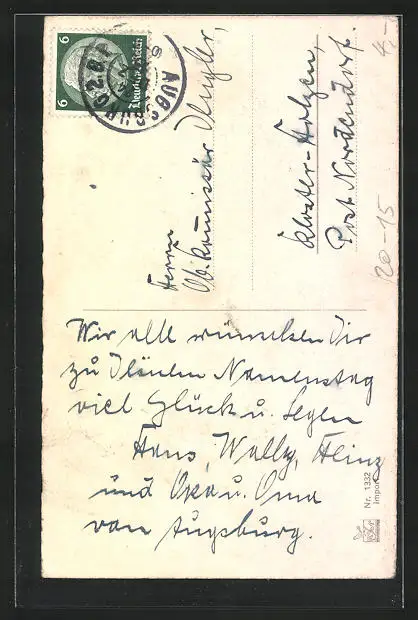 Wir alle wünschen Dir
zu Deinem Namenstag
viel Glück u. Segen
Hans, Wally, Heinz
und Opa u. Oma
von Augsburg.
Herrn
Ob. Komissär
Kloster-Holzen,
Post Nordendorf.
20-15
4,-
6 Deutsches Reich 6
AUGSBURG 2
Nr. 1332
import